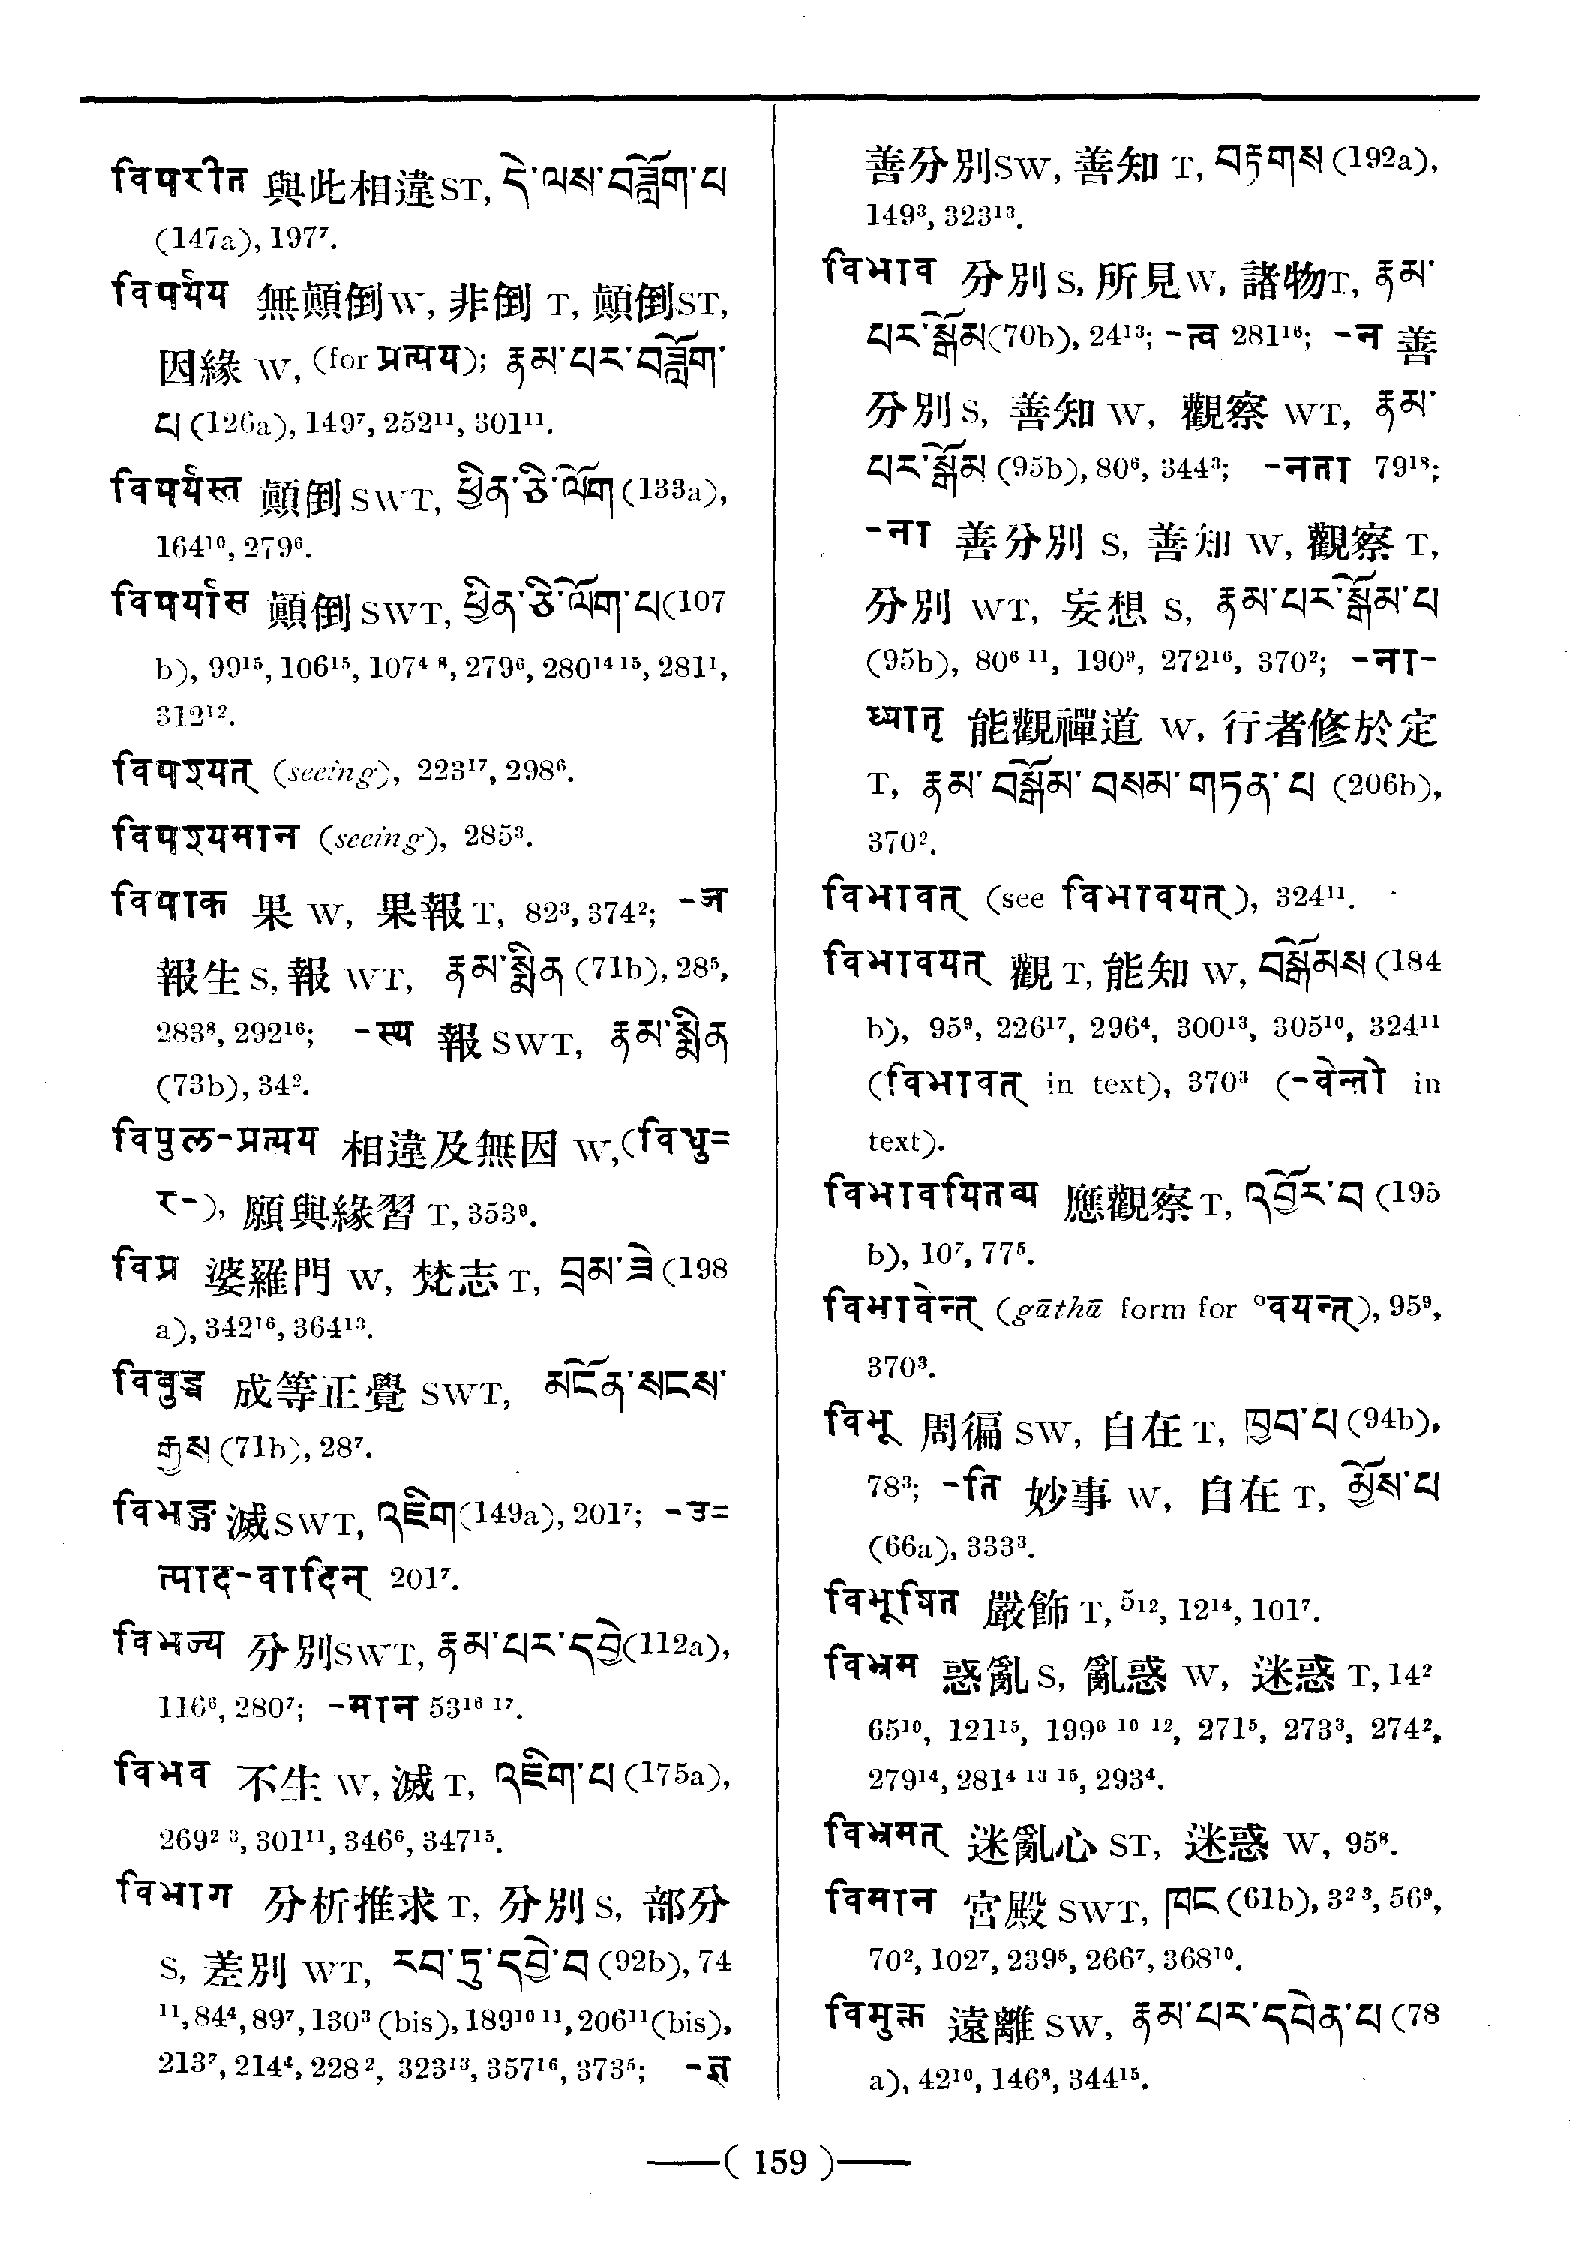 विपरीत 與此相違ST, དེ་ལས་བཟློག་པ
(147a), 197⁷.
विपर्यय 無顚倒W, 非倒 T, 顚倒ST,
因緣 W, (for प्रत्यय); རྣམ་པར་བཟློག་
པ (126a), 149⁷, 252¹¹, 301¹¹.
विपर्यस्त 顚倒 SWT, ཕྱིན་ཅི་ལོག (133a),
164¹⁰, 279⁶.
विपर्यास 顚倒 SWT, ཕྱིན་ཅི་ལོག་པ(107
b), 99¹⁵, 106¹⁵, 107⁴ ⁸, 279⁶, 280¹⁴ ¹⁵, 281¹,
312¹².
विपश्यत् (seeing), 223¹⁷, 298⁶.
विपश्यमान (seeing), 285³.
विपाक 果 W, 果報 T, 82³, 374²; -ज
報生 S, 報 WT, རྣམ་སྨིན (71b), 28⁵,
283⁸, 292¹⁶; -स्थ 報 SWT, རྣམ་སྨིན
(73b), 34².
विपुल-प्रत्यय 相違及無因 W,(विधु=
र-), 願與緣習 T, 353⁹.
विप्र 婆羅門 W, 梵志 T, བྲམ་ཟེ (198
a), 342¹⁶, 364¹³.
विबुद्ध 成等正覺 SWT, མངོན་སངས་
རྒྱས (71b), 28⁷.
विभङ्ग 滅SWT, འཇིག(149a), 201⁷; -उ=
त्पाद-वादिन् 201⁷.
विभज्य 分別SWT, རྣམ་པར་དབྱེ(112a),
116⁶, 280⁷; -मान 53¹⁶ ¹⁷.
विभव 不生 W, 滅 T, འཇིག་པ (175a),
269² ³, 301¹¹, 346⁶, 347¹⁵.
विभाग 分析推求 T, 分別 S, 部分
S, 差別 WT, རབ་ཏུ་དབྱེ་བ (92b), 74
¹¹, 84⁴, 89⁷, 130³ (bis), 189¹⁰ ¹¹, 206¹¹(bis),
213⁷, 214⁴, 228², 323¹³, 357¹⁶, 373⁵; -ज्ञ
善分別SW, 善知 T, བརྟགས (192a),
149³, 323¹³.
विभाव 分別 S, 所見 W, 諸物T, རྣམ་
པར་སྒོམ(70b), 24¹³; -त्व 281¹⁶; -न 善
分別 S, 善知 W, 觀察 WT, རྣམ་
པར་སྒོམ (95b), 80⁶, 344³; -नता 79¹⁸;
-ना 善分別 S, 善知 W, 觀察 T,
分別 WT, 妄想 S, རྣམ་པར་སྒོམ་པ
(95b), 80⁶ ¹¹, 190⁹, 272¹⁶, 370²; -ना-
ध्यातृ 能觀禪道 W, 行者修於定
T, རྣམ་ བསྒོམ་ བསམ་ གཏན་ པ (206b),
370².
विभावत् (see विभावयत्), 324¹¹.
विभावयत् 觀 T, 能知 W, བསྒོམས (184
b), 95⁹, 226¹⁷, 296⁴, 300¹³, 305¹⁰, 324¹¹
(विभावत् in text), 370³ (-वेन्तो in
text).
विभावयितव्य 應觀察 T, འབྱོར་བ (195
b), 10⁷, 77⁵.
विभावेन्त् (gāthā form for °वयन्त्), 95⁹,
370³.
विभू 周徧 SW, 自在 T, ཁྱབ་པ (94b),
78³; -ति 妙事 W, 自在 T, མྱོས་པ
(66a), 333³.
विभूषित 嚴飾 T, 5¹², 12¹⁴, 101⁷.
विभ्रम 惑亂 S, 亂惑 W, 迷惑 T, 14²
65¹⁰, 121¹⁵, 199⁶ ¹⁰ ¹², 271⁵, 273³, 274²,
279¹⁴, 281⁴ ¹³ ¹⁵, 293⁴.
विभ्रमत् 迷亂心 ST, 迷惑 W, 95⁸.
विमान 宮殿 SWT, ཁང (61b), 3² ³, 56⁹,
70², 102⁷, 239⁵, 266⁷, 368¹⁰.
विमुक्त 遠離 SW, རྣམ་པར་དབེན་པ (78
a), 42¹⁰, 146⁸, 344¹⁵.
—( 159 )—